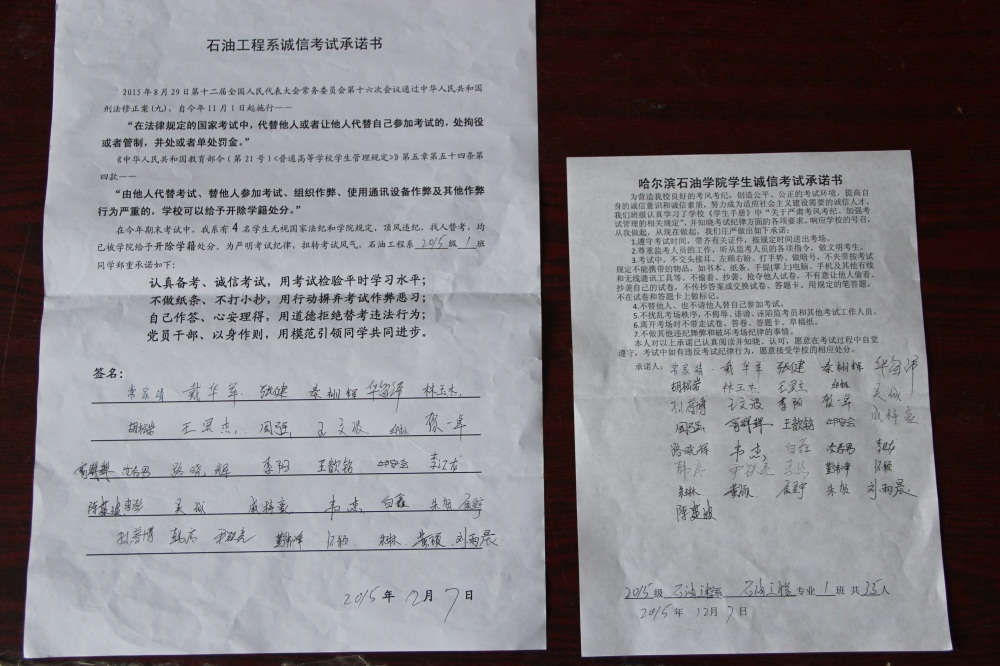 石油工程系诚信考试承诺书
2015年8月29日第十二届全国人民代表大会常务委员会第十六次会议通过中华人民共和国
刑法修正案(九)，自今年11月1日起施行——
“在法律规定的国家考试中，代替他人或者让他人代替自己参加考试的，处拘役
或者管制，并处或者单处罚金。”
《中华人民共和国教育部令（第21号）<普通高等学校学生管理规定》第五章第五十四条第
四款——
“由他人代替考试、替他人参加考试、组织作弊、使用通讯设备作弊及其他作弊
行为严重的，学校可以给予开除学籍处分。”
在今年期末考试中，我系有4名学生无视国家法纪和学院规定，顶风违纪，找人替考，均
已被学院给予开除学籍处分。为严明考试纪律，扭转考试风气，石油工程系 2015 级 1 班
同学郑重承诺如下：
认真备考、诚信考试，用考试检验平时学习水平；
不做纸条、不打小抄，用行动摒弃考试作弊恶习；
自己作答、心安理得，用道德拒绝替考违法行为；
党员干部、以身作则，用模范引领同学共同进步。
签名：
常家靖 戴华军 张健 秦栩辉 华家沛 林玉杰
胡铭岩 王昊杰 周强 王文波 贺一卓
沈春男 路晓辉 李阳 王歆铭
陈嘉波 吴斌 戚梓豪 韦杰 白鑫 朱贺
黄硕 刘雨晨
2015年 12月 7日
哈尔滨石油学院学生诚信考试承诺书
为营造我校良好的考风考纪，创造公平、公正的考试环境，提高自
身的诚信意识和诚信素质，努力成为适应社会主义建设需要的诚信人才，
我们班级认真学习了学校《学生手册》中“关于严肃考风考纪、加强考
试管理的相关规定”，并知晓考试纪律方面的各项要求，响应学校的号召，
从我做起，从现在做起，我们庄严做出如下承诺：
1.遵守考试时间，带齐有关证件，按规定时间进出考场。
2.尊重监考人员的工作，听从监考人员的各项指令，做文明考生。
3.考试中，不交头接耳、左顾右盼、打手势、做暗号，不夹带按考试
规定不能携带的物品，如书本、纸条、手提(掌上)电脑、手机及其他有线
和无线通讯工具等，不偷看、抄袭、抢夺他人试卷，不有意让他人偷看、
抄袭自己的试卷，不传抄答案或交换试卷、答题卡，用规定的笔答题，
不在试卷和答题卡上做标记。
4.不替他人、也不请他人替自己参加考试。
5.不扰乱考场秩序，不侮辱、诽谤、诬陷监考员和其他考试工作人员。
6.离开考场时不带走试卷、答卷、答题卡、草稿纸。
7.不做其他违纪舞弊和破坏考场纪律的事情。
本人对以上承诺已认真阅读并知晓、认可，愿意在考试过程中自觉
遵守，考试中如有违反考试纪律行为，愿意接受学校的相应处分。
承诺人： 常家靖 戴华军 张健 秦栩辉 华家沛
胡铭岩 林玉杰 王昊杰 吴斌
王文波 李阳 贺一卓 戚梓豪
周强 王歆铭
路晓辉 韦杰 白鑫 沈春男
黄硕 朱贺 刘雨晨
陈嘉波
2015级 石油工程系 石油工程 专业 1 班 共 35人
2015年 12月 7日